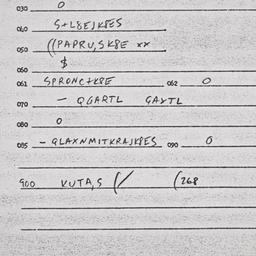 030 0
040 S+L8EJK8ES
050 ((PAPRU,SK8E xx
$
060
061 SPRONC+K8E 062 0
070 - QGARTL GAXTL
080 0
085 - QLAXNMITKRAJK8ES 090 0
900 KUTA,S (/ (268